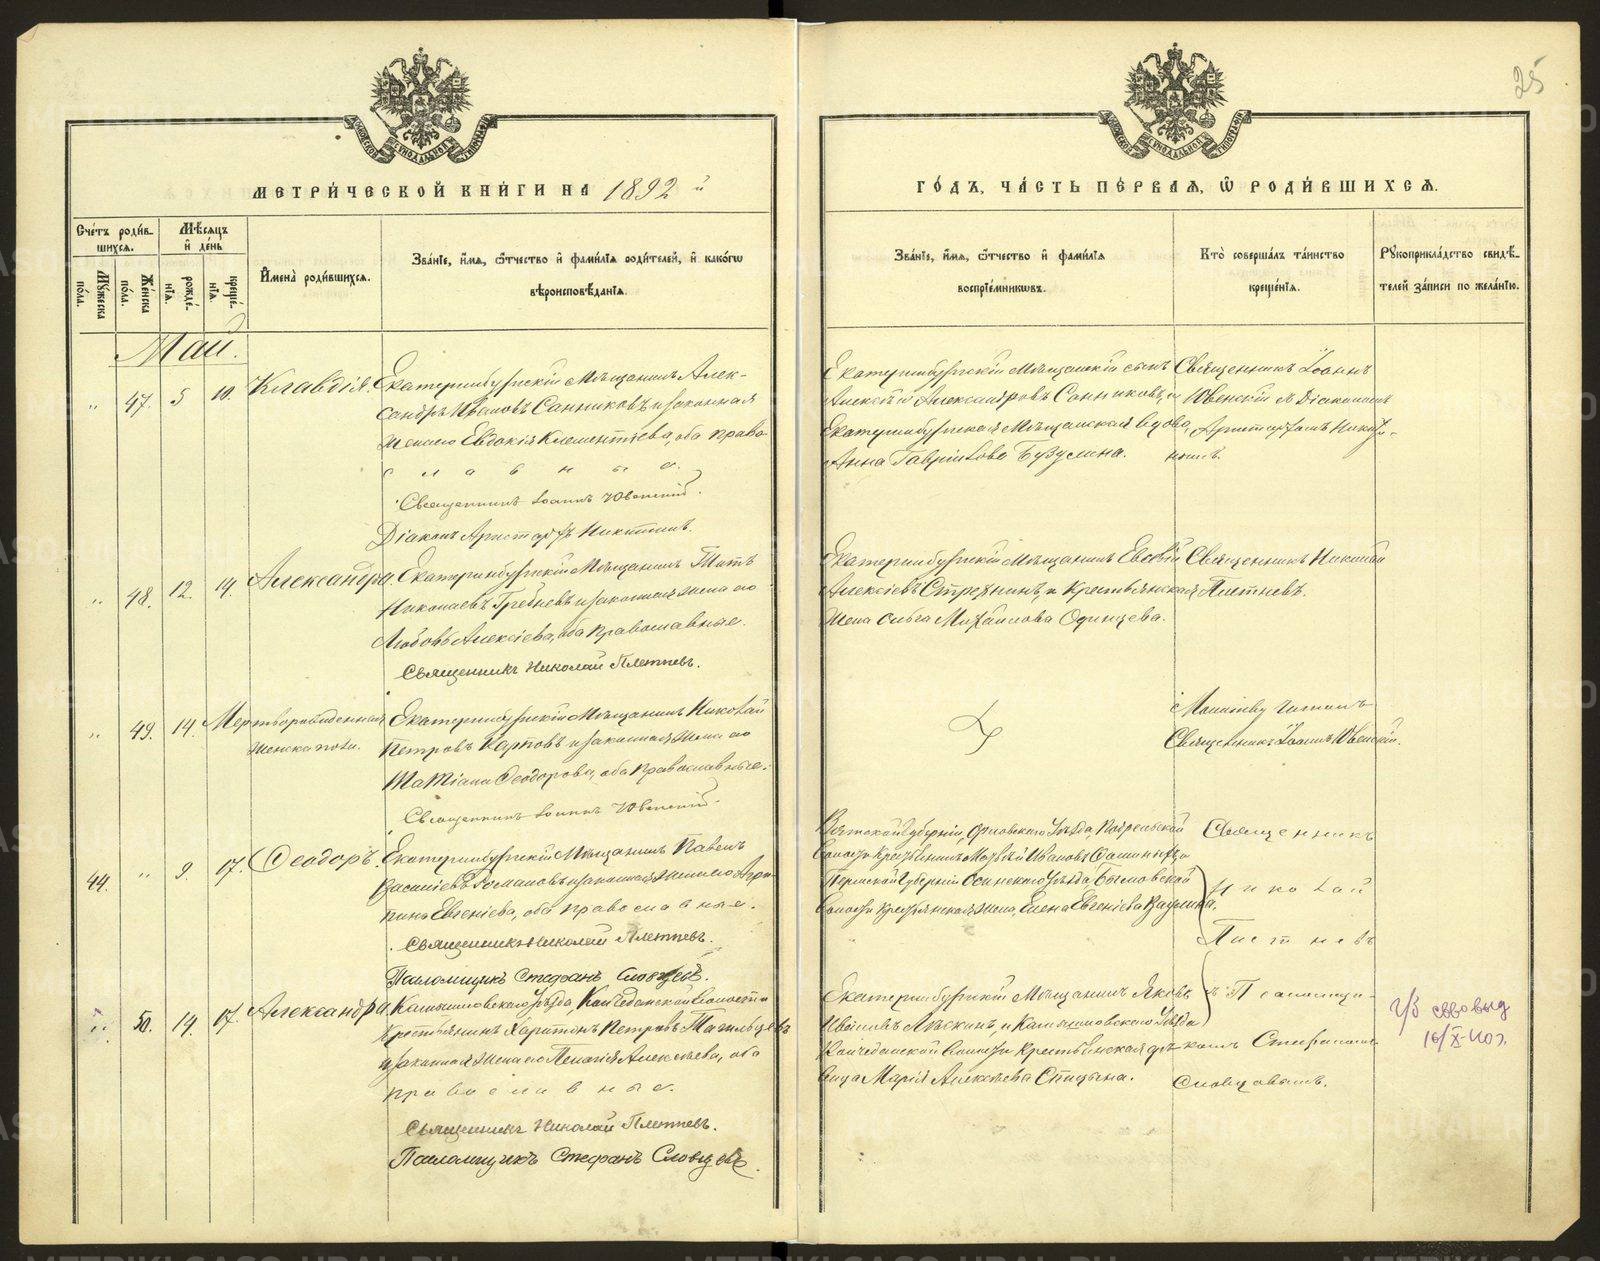 25
МЕТРИ́ЧЕСКОЙ КНИ́ГИ НА 1892 й
ГО́ДЪ, ЧА́СТЬ ПЕ́РВАЯ, Ѿ РОДИ́ВШИХСѦ.
Счéтъ роди́вшихсѧ.
Мѣ́сѧцъ и҆ де́нь
Мꙋ́жеска по́ла.
Же́нска по́ла.
рожде́нїѧ.
креще́нїѧ.
И҆мена̀ роди́вшихсѧ.
Зва́нїе, и҆́мѧ, ѻ҆́тчество и҆ фамі́лїѧ роди́телей, и҆ како́гѡ
вѣроисповѣ́данїѧ.
Зва́нїе, и҆́мѧ, ѻ҆́тчество и҆ фамі́лїѧ
воспрїе́мникѡвъ.
Кто̀ соверша́лъ та́инство
креще́нїѧ.
Рꙋкоприкла́дство свидѣ́-
телей за́писи по жела́нїю.
Май.
" 47. 5 10. Клавдія.
Екатеринбургскій мѣщанинъ Алек-
сандръ Ивановъ Санниковъ и законная
жена его Евдокія Клементіева, оба право-
славные.
Священникъ Іоаннъ Ювенскій.
Діаконъ Аристархъ Никитинъ.
Екатеринбургскій мѣщанскій сынъ
Алексѣй Александровъ Санниковъ, и
Екатеринбургская мѣщанская вдова
Анна Гаврилова Бузулина.
Священникъ Іоаннъ
Ювенскій съ Діакономъ
Аристархомъ Никити-
нымъ.
" 48. 12. 14. Александра
Екатеринбургскій мѣщанинъ Титъ
Николаевъ Гребневъ и законная жена его
Любовь Алексіева, оба православные.
Священникъ Николай Плетневъ.
Екатеринбургскій мѣщанинъ Евсевій
Алексіевъ Стрежнинъ, и Крестьянская
жена Ольга Михайлова Одинцева.
Священникъ Николай
Плетневъ.
" 49. 14. Мертворожденная
женска пола.
Екатеринбургскій мѣщанинъ Николай
Петровъ Карповъ и законная жена его
Татіана Ѳеодорова, оба православные.
Священникъ Іоаннъ Ювенскій.
Молитву читалъ
Священникъ Іоаннъ Ювенскій.
44. " 9. 17. Ѳеодоръ.
Екатеринбургскій мѣщанинъ Павелъ
Василіевъ Росмановъ и законная жена его Агри-
пина Евгеніева, оба православные.
Священникъ Николай Плетневъ.
Псаломщикъ Стефанъ Словцовъ.
Вятской губерніи, Орловскаго уѣзда,
волости крестьянинъ Матвѣй Ивановъ
Пермской губерніи Осинскаго уѣзда,
волости крестьянская жена, Елена Евгеніева
Священникъ
Николай
Плетневъ
" 50. 14. 17. Александра
Камышловскаго уѣзда, Колчеданской волости
крестьянинъ Харитонъ Петровъ Тагильцевъ
и законная жена его Пелагія Алексѣева, оба
православные.
Священникъ Николай Плетневъ.
Псаломщикъ Стефанъ Словцовъ.
Екатеринбургскій мѣщанинъ Яковъ
Ивановъ Лѣскинъ, и Камышловскаго уѣзда
Колчеданской волости крестьянская дѣ-
вица Марія Алексѣева Спицына.
съ Псаломщи-
комъ Стефаномъ
Словцовымъ.